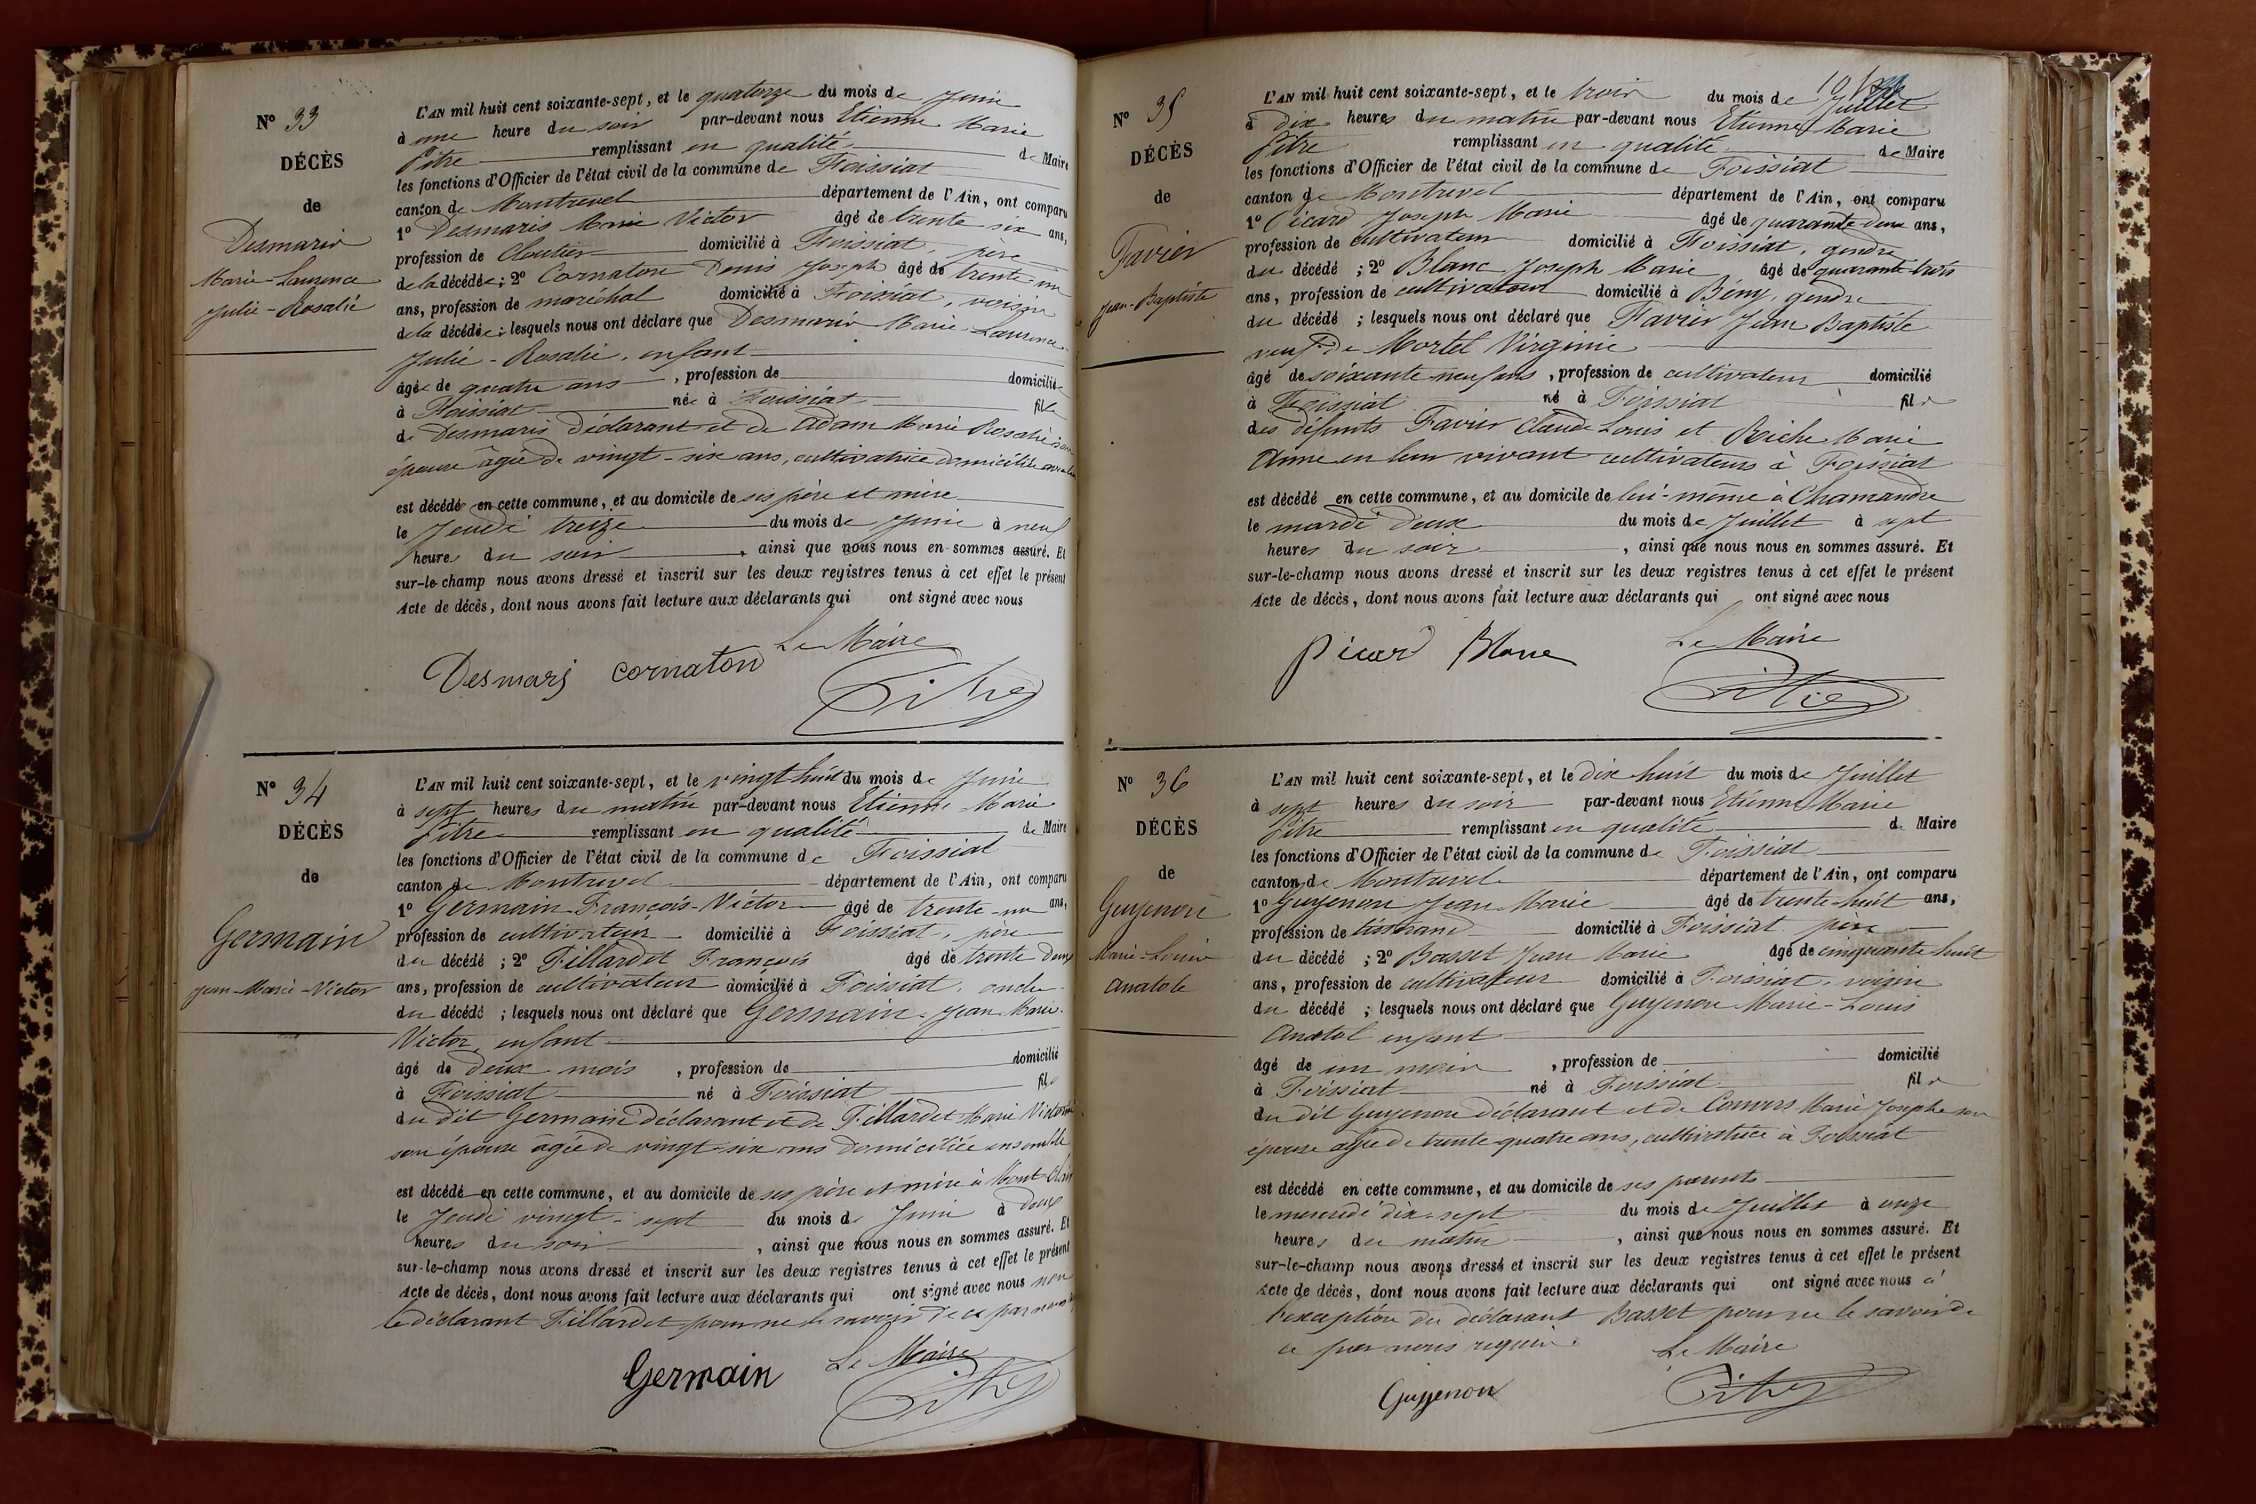 N° 33
DÉCÈS
de
Desmaris
Marie-Laurence
Julie-Rosalie
L'AN mil huit cent soixante-sept, et le quatorze du mois de Juin
à une heure du soir par-devant nous Etienne Marie
Pitre remplissant en qualité de Maire
les fonctions d'Officier de l'état civil de la commune de Foissiat
canton de Montrevel département de l'Ain, ont comparu
1° Desmaris Marie Victor âgé de trente six ans,
profession de cloutier domicilié à Foissiat, père
de la décédée; 2° Cornaton Denis Joseph âgé de trente un
ans, profession de maréchal domicilié à Foissiat, voisin
de la décédée; lesquels nous ont déclaré que Desmaris Marie-Laurence
Julie-Rosalie, enfant
âgée de quatre ans, profession de domiciliée
à Foissiat née à Foissiat fille
de Desmaris déclarant et de Adam Marie Rosalie son
épouse âgée de vingt-six ans, cultivatrice domiciliée avec lui
est décédé en cette commune, et au domicile de ses père et mère
le Jeudi treize du mois de Juin à neuf
heures du soir, ainsi que nous nous en sommes assuré. Et
sur-le-champ nous avons dressé et inscrit sur les deux registres tenus à cet effet le présent
Acte de décès, dont nous avons fait lecture aux déclarants qui ont signé avec nous
Le Maire
Desmaris cornaton Pitre
N° 34
DÉCÈS
de
Germain
Jean-Marie-Victor
L'AN mil huit cent soixante-sept, et le vingt huit du mois de Juin
à sept heures du matin par-devant nous Etienne Marie
Pitre remplissant en qualité de Maire
les fonctions d'Officier de l'état civil de la commune de Foissiat
canton de Montrevel département de l'Ain, ont comparu
1° Germain François-Victor âgé de trente-un ans,
profession de cultivateur domicilié à Foissiat, père
du décédé; 2° Fillardet François âgé de trente deux
ans, profession de cultivateur domicilié à Foissiat, oncle
du décédé; lesquels nous ont déclaré que Germain Jean Marie
Victor, enfant
âgé de deux mois, profession de domicilié
à Foissiat né à Foissiat fils
du dit Germain déclarant et de Fillardet Marie Victorine
son épouse âgée de vingt-six ans domiciliée ensemble
est décédé en cette commune, et au domicile de ses père et mère à Mont
le Jeudi vingt-sept du mois de Juin à deux
heures du soir, ainsi que nous nous en sommes assuré. Et
sur-le-champ nous avons dressé et inscrit sur les deux registres tenus à cet effet le présent
Acte de décès, dont nous avons fait lecture aux déclarants qui ont signé avec nous non
le déclarant Fillardet pour ne le savoir de ce par nous
Le Maire
Germain Pitre
N° 35
DÉCÈS
de
Favier
Jean-Baptiste
L'AN mil huit cent soixante-sept, et le trois du mois de Juillet
à dix heures du matin par-devant nous Etienne Marie
Pitre remplissant en qualité de Maire
les fonctions d'Officier de l'état civil de la commune de Foissiat
canton de Montrevel département de l'Ain, ont comparu
1° Picard Joseph Marie âgé de quarante deux ans,
profession de cultivateur domicilié à Foissiat, gendre
du décédé; 2° Blanc Joseph Marie âgé de quarante trois
ans, profession de cultivateur domicilié à Bény, gendre
du décédé; lesquels nous ont déclaré que Favier Jean Baptiste
veuf de Mortel Virginie
âgé de soixante neuf ans, profession de cultivateur domicilié
à Foissiat né à Foissiat fils
des défunts Favier Claude Louis et Riche Marie
Anne en leur vivant cultivateurs à Foissiat
est décédé en cette commune, et au domicile de lui-même à Chamandre
le mardi deux du mois de Juillet à sept
heures du soir, ainsi que nous nous en sommes assuré. Et
sur-le-champ nous avons dressé et inscrit sur les deux registres tenus à cet effet le présent
Acte de décès, dont nous avons fait lecture aux déclarants qui ont signé avec nous
Le Maire
Picard Blanc Pitre
N° 36
DÉCÈS
de
Guyenon
Marie-Louis
Anatole
L'AN mil huit cent soixante-sept, et le dix huit du mois de Juillet
à sept heures du soir par-devant nous Etienne Marie
Pitre remplissant en qualité de Maire
les fonctions d'Officier de l'état civil de la commune de Foissiat
canton de Montrevel département de l'Ain, ont comparu
1° Guyenon Jean Marie âgé de trente-huit ans,
profession de tisserand domicilié à Foissiat père
du décédé; 2° Basset Jean Marie âgé de cinquante huit
ans, profession de cultivateur domicilié à Foissiat, voisin
du décédé; lesquels nous ont déclaré que Guyenon Marie-Louis
Anatol enfant
âgé de un mois, profession de domicilié
à Foissiat né à Foissiat fils
du dit Guyenon déclarant et de Convers Marie Josephe son
épouse âgée de trente-quatre ans, cultivatrice à Foissiat
est décédé en cette commune, et au domicile de ses parents
le mercredi dix-sept du mois de Juillet à onze
heures du matin, ainsi que nous nous en sommes assuré. Et
sur-le-champ nous avons dressé et inscrit sur les deux registres tenus à cet effet le présent
Acte de décès, dont nous avons fait lecture aux déclarants qui ont signé avec nous à
l'exception du déclarant Basset pour ne le savoir de
ce par nous requis.
Le Maire
Guyenon Pitre